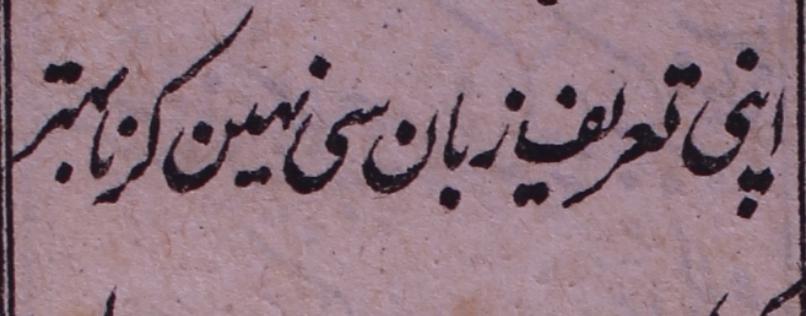 اپنی تعریف زبان سی نہین کرنا بہتر